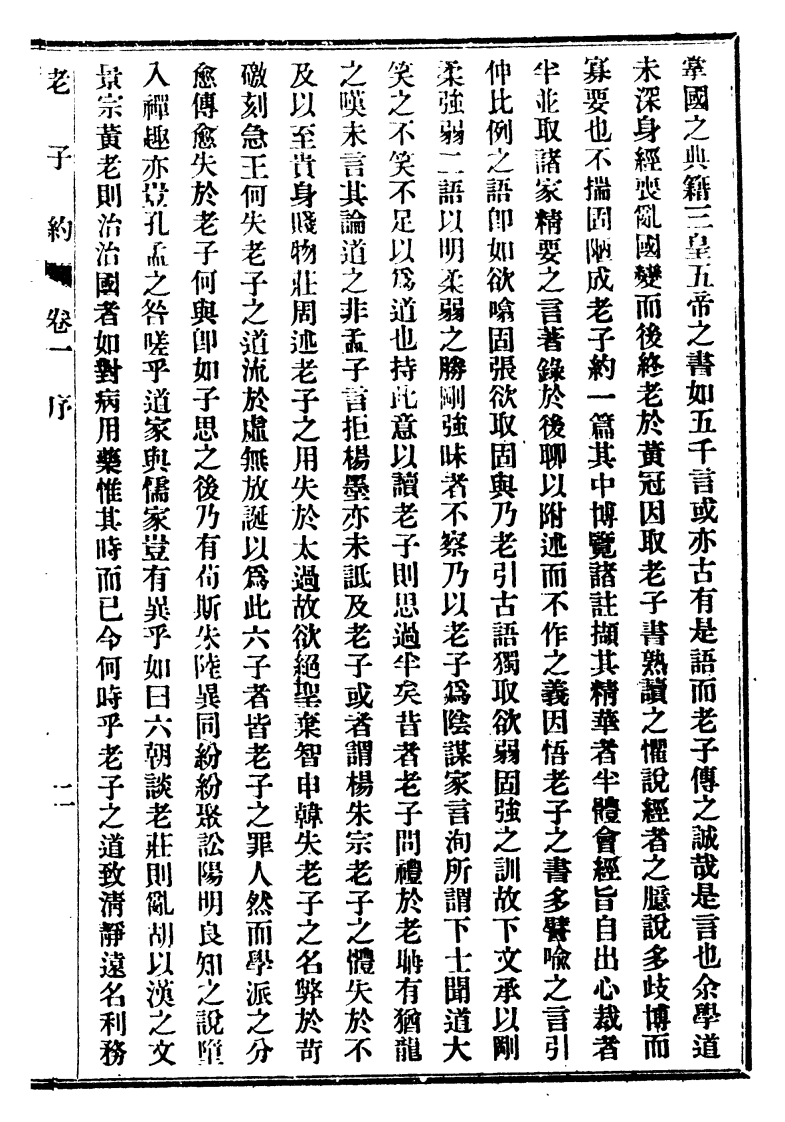 掌國之典籍三皇五帝之書如五千言或亦古有是語而老子傳之誠哉是言也余學道
未深身經喪亂國變而後終老於黃冠因取老子書熟讀之懼說經者之臆說多歧博而
寡要也不揣固陋成老子約一篇其中博覽諸註擷其精華者半體會經旨自出心裁者
半並取諸家精要之言著錄於後聊以附述而不作之義因悟老子之書多譬喻之言引
伸比例之語卽如欲噏固張欲取固與乃老引古語獨取欲弱固強之訓故下文承以剛
柔強弱二語以明柔弱之勝剛強昧者不察乃以老子爲陰謀家言洵所謂下士聞道大
笑之不笑不足以爲道也持此意以讀老子則思過半矣昔者老子問禮於老聃有猶龍
之嘆未言其論道之非孟子言拒楊墨亦未詆及老子或者謂楊朱宗老子之體失於不
及以至貴身賤物莊周述老子之用失於太過故欲絕聖棄智申韓失老子之名弊於苛
礉刻急王何失老子之道流於虛無放誕以爲此六子者皆老子之罪人然而學派之分
愈傳愈失於老子何與卽如子思之後乃有荀斯朱陸異同紛紛聚訟陽明良知之說墮
入禪趣亦豈孔孟之咎嗟乎道家與儒家豈有異乎如曰六朝談老莊則亂胡以漢之文
景宗黃老則治治國者如對病用藥惟其時而已今何時乎老子之道致淸靜遠名利務
老子約 卷一 序 二